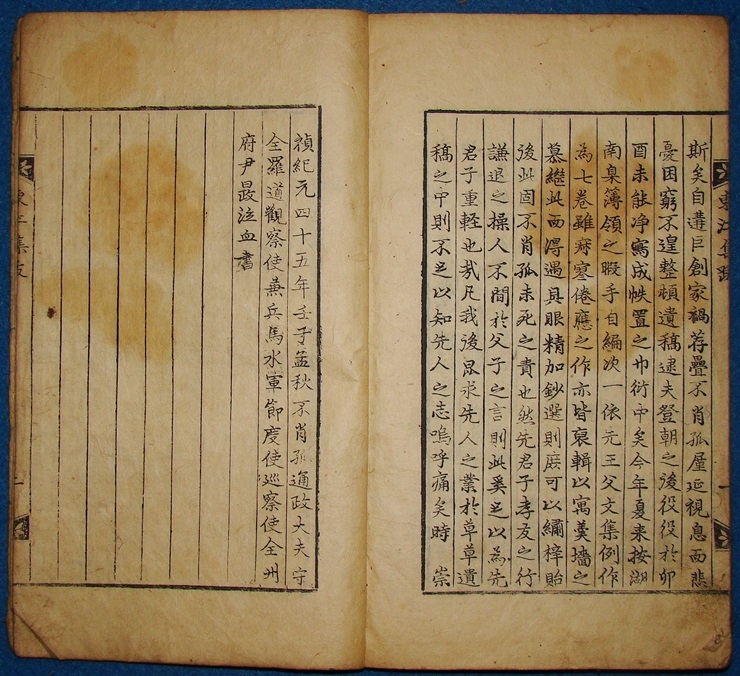 斯矣自遘巨創家禍荐疊不肖孤屋延視息而悲
憂困窮不遑整頓遺稿逮夫登朝之後役役於卯
酉未能净寫成帙置之巾衍中矣今年夏来按湖
南臬簿領之暇手自編次一依元王父文集例作
為七卷雖疎寒倦應之作亦皆裒輯以寓羹墻之
慕繼此而得遇具眼精加鈔選則庶可以繡梓貽
後此固不肖孤未死之責也然先君子孝友之行
謙退之操人不間於父子之言則此奚足以為先
君子重輕也哉凡我後昆求先人之業於草草遺
稿之中則不足以知先人之志嗚呼痛矣時 崇
禎紀元四十五年壬子孟秋不肖孤通政大夫守
全羅道觀察使兼兵馬水軍節度使巡察使全州
府尹㝡泣血書
東江集跋
一
集跋
一